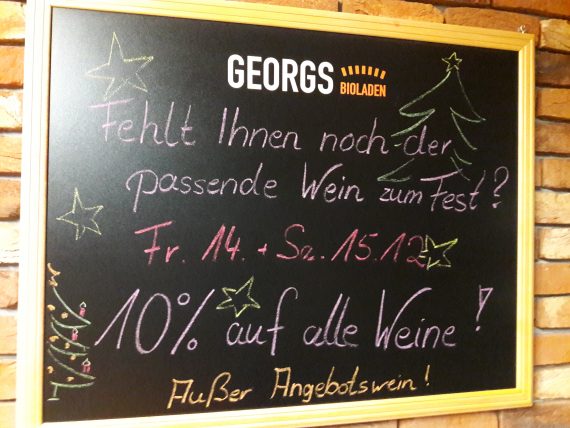 GEORGS BIOLADEN
Fehlt Ihnen noch der
passende Wein zum Fest?
Fr. 14. + Sa. 15.12
10% auf alle Weine!
Außer Angebotswein!